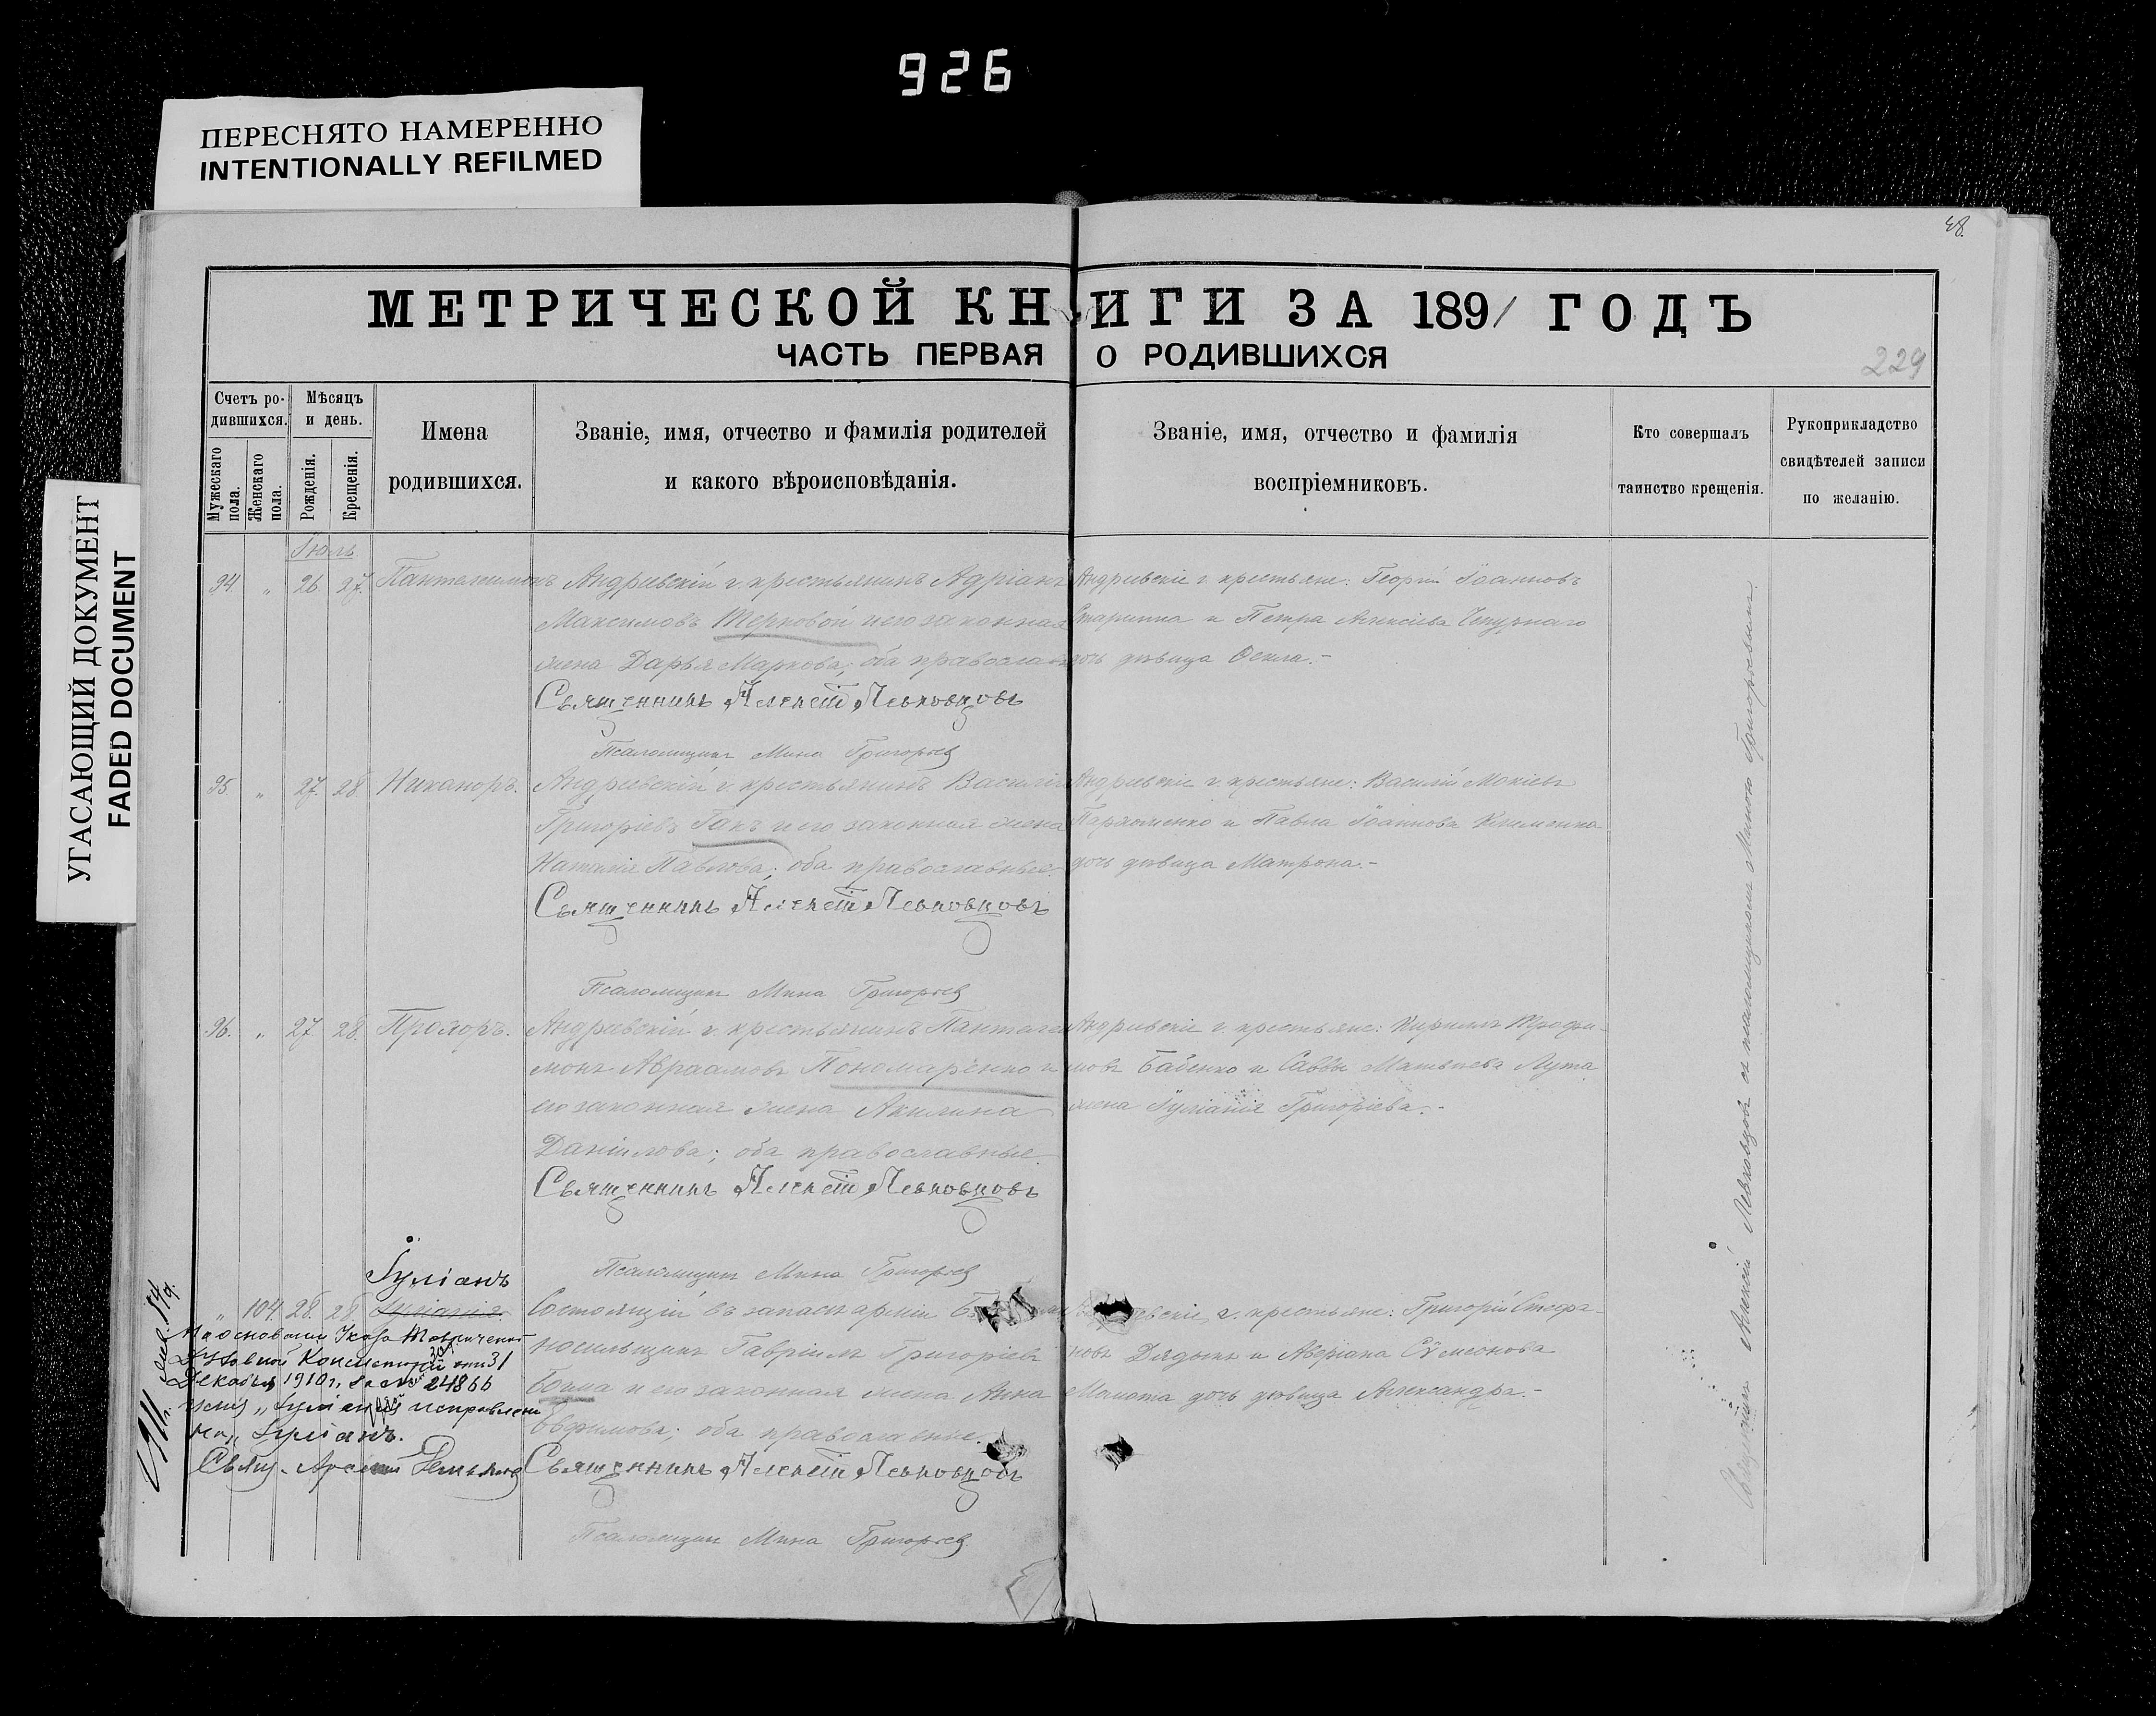 926
ПЕРЕСНЯТО НАМЕРЕННО
INTENTIONALLY REFILMED
УГАСАЮЩИЙ ДОКУМЕНТ
FADED DOCUMENT
48.
МЕТРИЧЕСКОЙ КНИГИ ЗА 1891 ГОДЪ
ЧАСТЬ ПЕРВАЯ О РОДИВШИХСЯ
229
Счетъ ро-
дившихся.
Мужескаго пола.
Женскаго пола.
Мѣсяцъ
и день.
Рожденія.
Крещенія.
Имена
родившихся.
Званіе, имя, отчество и фамилія родителей
и какого вѣроисповѣданія.
Званіе, имя, отчество и фамилія
воспріемниковъ.
Кто совершалъ
таинство крещенія.
Рукоприкладство
свидѣтелей записи
по желанію.
Іюль
94. " 26. 27. Пантелеимонъ Андреевскій г. крестьянинъ Адріанъ
Максимовъ Терновой и его законная
жена Дарья Маркова; оба православ.
Священникъ Алексій Левковцовъ
Псаломщикъ Мина Григорьев
Андреевскіе г. крестьяне: Георгій Іоанновъ
и Петра Алексіева
дочь дѣвица
95 " 27. 28. Никаноръ. Андреевскій г. крестьянинъ Василій
Григоріевъ Гакъ и его законная жена
Наталія Павлова; оба православные.
Священникъ Алексій Левковцовъ
Псаломщикъ Мина Григорьев
Андреевскіе г. крестьяне: Василій Мокіевъ
Пархоменко и Павла Іоаннова Клименка
дочь дѣвица Матрона.-
96. " 27 28. Прохоръ. Андреевскій г. крестьянинъ Пантелеи
монъ Авраамовъ Пономаренко и
его законная жена Акилина
Даніилова; оба православные
Священникъ Алексій Левковцовъ
Псаломщикъ Мина Григорьев
Андреевскіе г. крестьяне: Кирилъ Трофи-
мовъ Бабенко и Саввы Матвѣева Лута
жена Іуліанія Григоріева.-
Іуліанъ
" 104. 28. 28. Іуліанія. Состоящій въ запасѣ арміи
Гавріилъ Григоріевъ
и его законная жена Анна
Евфимова; оба православные.
Священникъ Алексій Левковцовъ
Псаломщикъ Мина Григорьев
г. крестьяне: Григорій Стефа-
новъ Дядыкъ и Аверіана Сѵмеонова
дочь дѣвица Александра.-
На основаніи Указа Таврической
Духовной Консисторіи отъ 31
Декабря 1910 г. за № 24866
имя „Іуліанія исправлено
на „Іуліанъ.
Свящ.
Священникъ Алексій Левковцовъ съ псаломщикомъ Миною Григорьевымъ